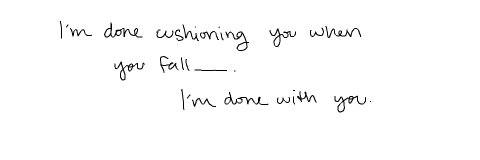 I'm done cushioning you when
you fall__.
I'm done with you.